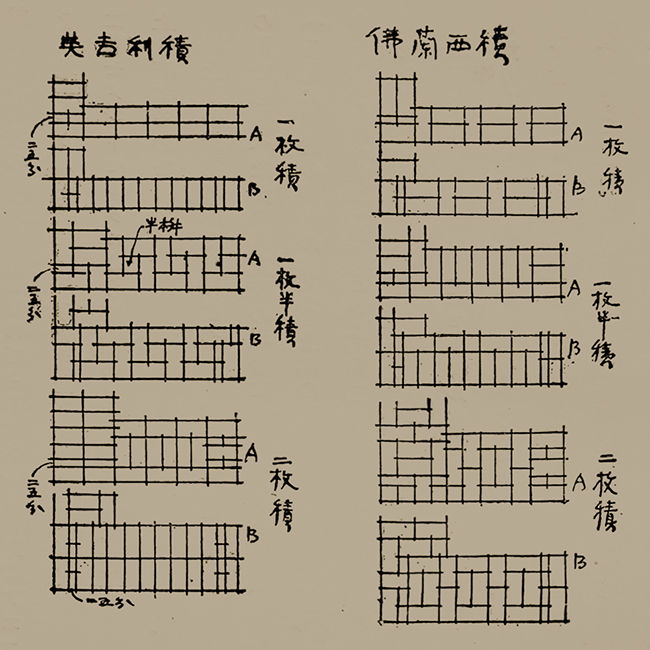 英吉利積
佛蘭西積
二五分
A
一枚積
B
半桝
二五分
A
一枚半積
B
二五分
A
二枚積
B
一五分
A
一枚積
B
A
一枚半積
B
A
二枚積
B